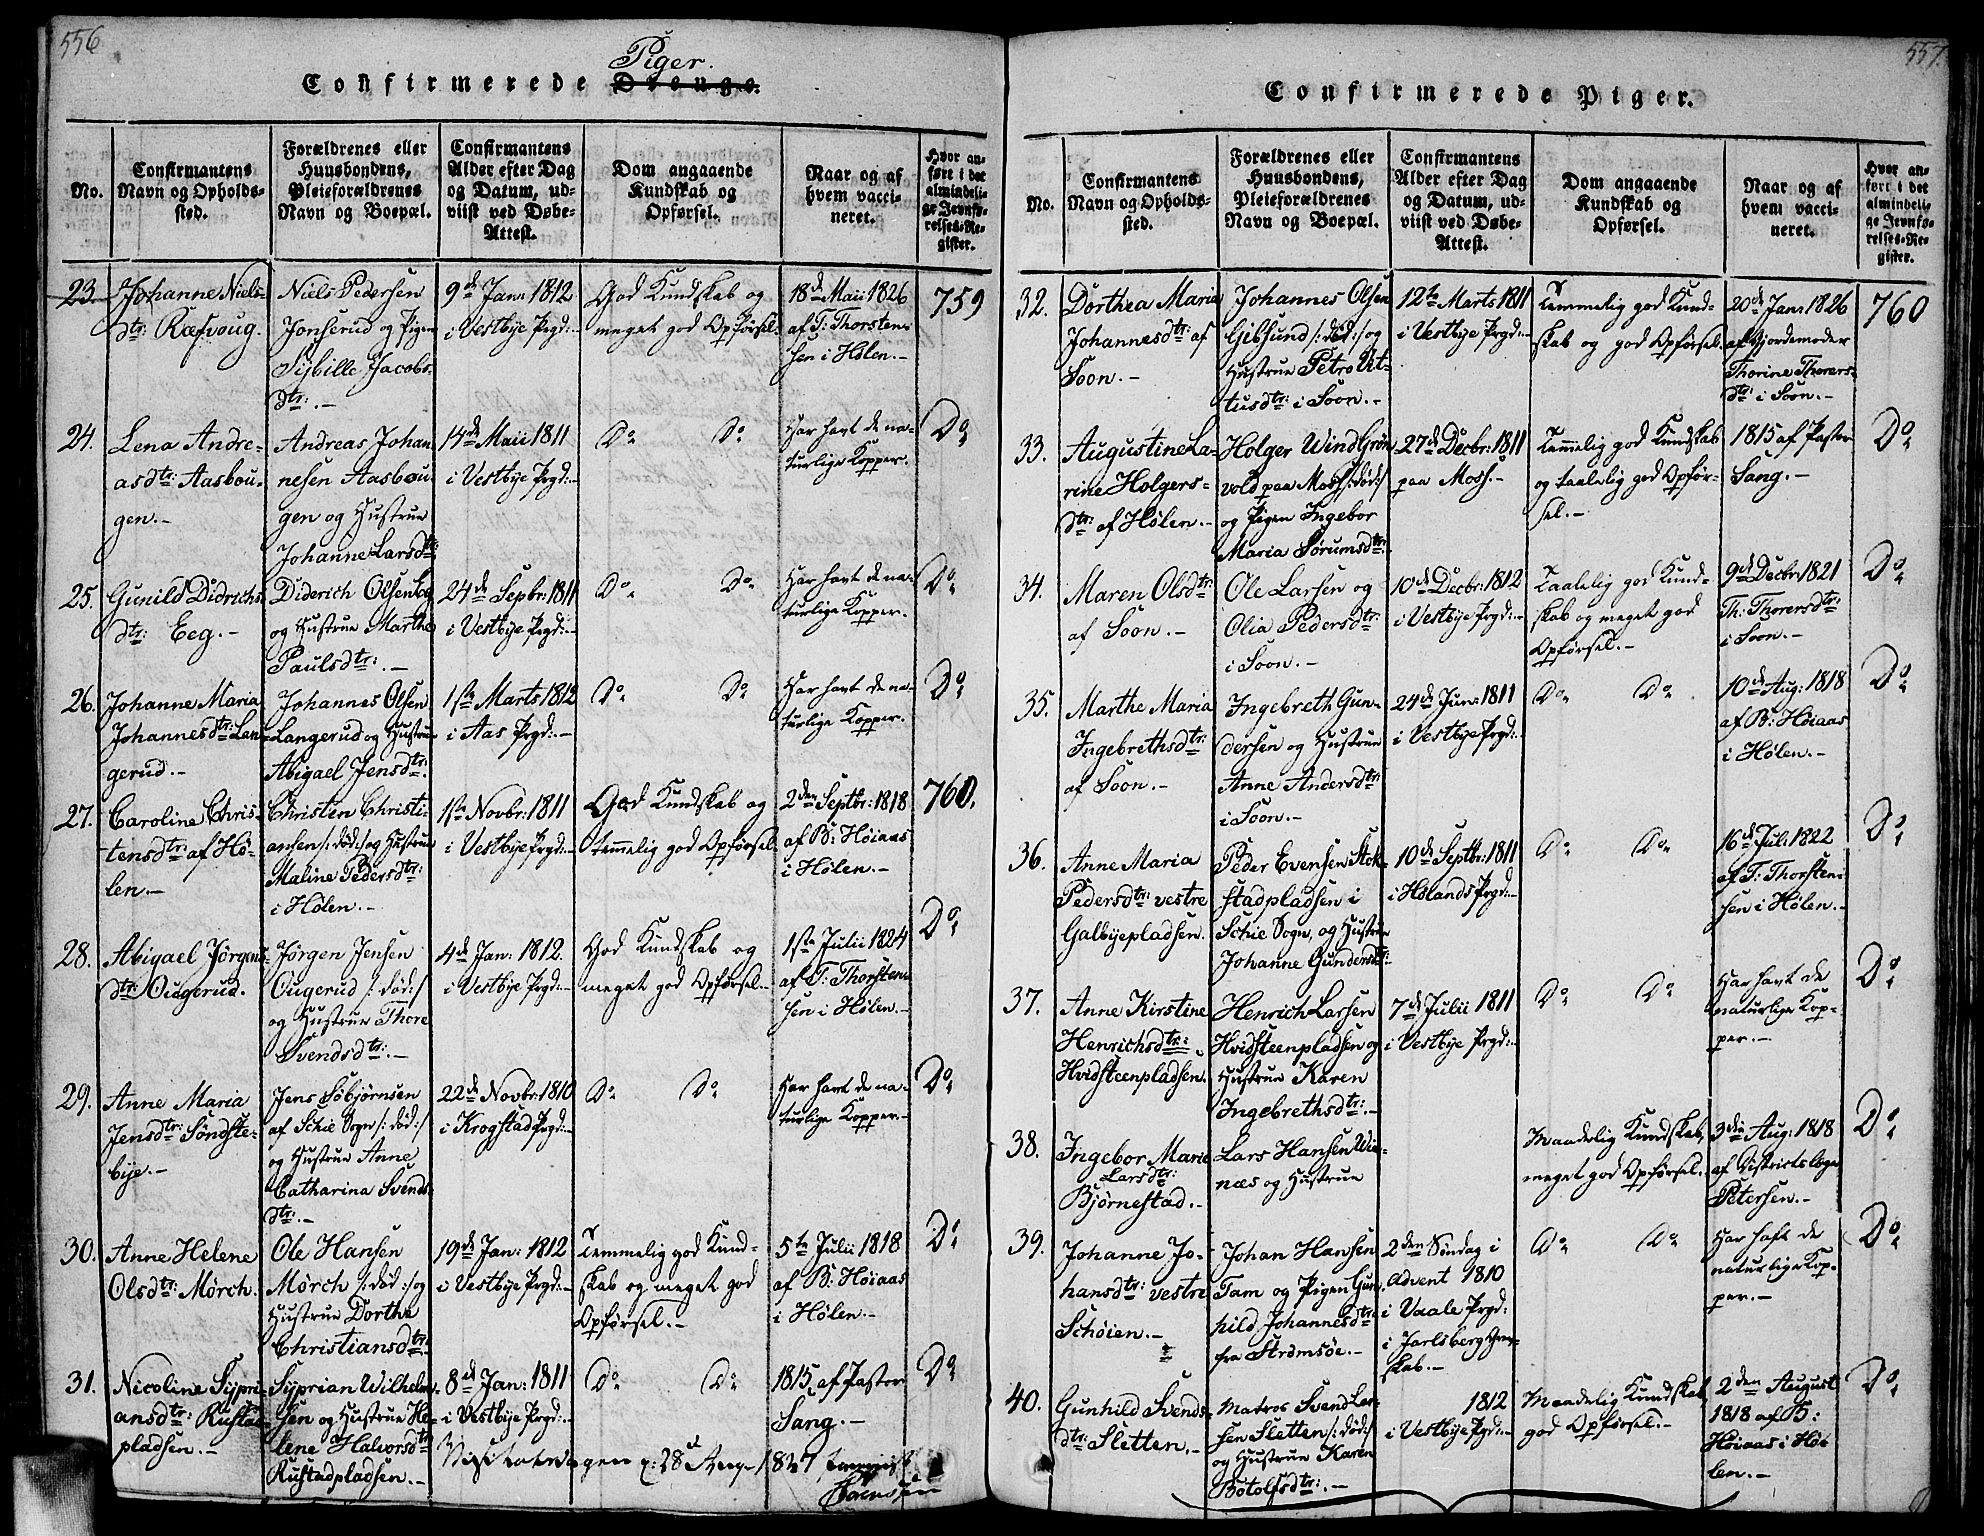 556
Piger.
Confirmerede Drenge.
No.
Confirmantens
Navn og Opholds-
sted.
Forældrenes eller
Huusbondens,
Pleieforældrenes
Navn og Boepæl.
Confirmantens
Alder efter Dag
og Datum, ud-
viist ved Døbe-
Attest.
Dom angaaende
Kundskab og
Opførsel.
Naar og af
hvem vacci-
neret.
Hvor an-
ført i det
almindeli-
ge Jevnfø-
relses-Re-
gister.
23.
Johanne Niels-
dtr: Ræfvoug.
Niels Pedersen
Jonserud og Pigen
Sybille Jacobs-
dtr:.-
9de Jan: 1812
i Vestbye Prgd:-
God Kundskab og
meget god Opførsel
18de Maii 1826
af T: Thorsten-
sen i Hølen.-
759
24.
Lena Andre-
asdtr: Aasbou-
gen.-
Andreas Johan-
nesen Aasbou-
gen og Hustrue
Johanne Larsdtr:
14de Maii 1811
i Vestbye Prgd:-
Do Do
Har havt de na-
turlige Kopper.
Do
25.
Gunild Didrichs-
dtr: Eeg.-
Diderich Olsen Eeg
og Hustrue Marthe
Paulsdtr:.-
24de Sepbr: 1811
i Vestbye Prgd:-
Do Do
Har havt de na-
turlige Kopper.-
Do
26.
Johanne Maria
Johannesdtr: Lan-
gerud.-
Johannes Olsen
Langerud og Hustrue
Abigael Jensdtr:
1ste Marts 1812
i Aas Prgd:-
Do Do
Har havt de na-
turlige Kopper.-
Do
27.
Caroline Chris-
tensdtr: af Hø-
len.-
Christen Christi-
ansen /: død:/ og Hustrue
Maline Pedersdtr:
i Hølen.-
1ste Novbr: 1811
i Vestbye Prgd:-
God Kundskab og
temmelig god Opførsel
2den Septbr: 1818
af B: Høiaas
i Hølen.-
760.
28.
Abigael Jørgens-
dtr: Ougerud.
Jørgen Jensen
Ougerud /: død:/
og Hustrue Thore
Svendsdtr:.-
4de Jan: 1812.
i Vestbye Prgd:-
God Kundskab og
meget god Opførsel.-
1ste Julii 1824
af T: Thorsten-
sen i Hølen.-
Do
29.
Anne Maria
Jensdtr: Søndste-
bye.-
Jens Søbjørnsen
af Schie Sogn /: død:/
og Hustrue Anne
Catharina Svends-
dtr:.-
22de Novbr: 1810
i Krogstad Prgd:-
Do Do
Har havt de na-
turlige Kopper.-
Do
30.
Anne Helene
Olsdtr: Mørch.
Ole Hansen
Mørch /: død:/ og
Hustrue Dorthe
Christiansdtr:
19de Jan: 1812
i Vestbye Prgd:-
Temmelig god Kund-
skab og meget god
Opførsel.-
5te Julii 1818
af B: Høiaas
i Hølen.-
Do
31.
Nicoline Sypri-
ansdtr: Rustad-
pladsen.-
Syprian Wilhelm-
sen og Hustrue He-
lene Halvorsdtr:
Rustadpladsen.-
8de Jan: 1811
i Vestbye Prgd:-
Do Do
1815, af Pastor
Sang.-
Do
28 Aug 1827
557.
Confirmerede Piger.
No.
Confirmantens
Navn og Opholds-
sted.
Forældrenes eller
Huusbondens,
Pleieforældrenes
Navn og Boepæl.
Confirmantens
Alder efter Dag
og Datum, ud-
viist ved Døbe-
Attest.
Dom angaaende
Kundskab og
Opførsel.
Naar og af
hvem vacci-
neret.
Hvor an-
ført i det
almindeli-
ge Jevnfø-
relses-Re-
gister.
32.
Dorthea Maria
Johannesdtr: af
Soon.-
Johannes Olsen
Gibsund /: død:/ og
Hustrue Petro At-
tusdtr: i Soon.-
12te Marts 1811
i Vestbye Prgd:-
Temmelig god Kund-
skab og god Opførsel.
20de Jan: 1826
af Gjordemoder
Thorine Thorers-
dtr: i Soon.-
760
33.
Augustine La-
rine Holgers-
dtr: af Hølen.-
Holger Wind Grøn-
vold paa Moss /: død:/
og Pigen Ingebor
Maria Sørumsdtr:
27de Decbr: 1811
paa Moss.-
Temmelig god Kundskab
og taalelig god Opfør-
sel.-
1815 af Pastor
Sang.-
Do
34.
Maren Olsdtr:
af Soon.-
Ole Larsen og
Olia Pedersdtr:
i Soon.-
10de Decbr: 1812
i Vestbye Prgd:-
Taalelig god Kund-
skab og meget god
Opførsel.-
9de Decbr: 1821
Th: Thorersdtr:
i Soon.-
Do
35.
Marthe Maria
Ingebrethsdtr:
af Soon.-
Ingebreth Gun-
dersen og Hustrue
Anne Andersdtr:
i Soon.-
24de Jun: 1811
i Vestbye Prgd:-
Do Do
10de Aug: 1818
af B: Høiaas
i Hølen.-
Do
36.
Anne Maria
Pedersdtr: vestre
Galbyepladsen.
Peder Evensen Stok-
stadpladsen i
Schie Sogn, og Hustrue
Johanne Gundersdtr:
10de Septbr: 1811
i Hølands Prgd:-
Do Do
16de Jul: 1822
af T: Thorsten-
sen i Hølen.-
Do
37.
Anne Kirstine
Henrichsdtr:
Hvidsteenpladsen.
Henrich Larsen
Hvidsteenpladsen og
Hustrue Karen
Ingebrethsdtr:.-
7de Julii 1811
i Vestbye Prgd:-
Do Do
Har havt de
naturlige Kop-
per.-
Do
38.
Ingebor Marie
Larsdtr:
Bjørnestad.-
Lars Hansen Wie-
næs og Hustrue
Maadelig Kundskab,
meget god Opførsel.-
3die Aug: 1818
af Districtslæge
Petersen.-
Do
39.
Johanne Jo-
hansdtr: vestre
Schøien.-
Johan Hansen
Tam og Pigen Gun-
hild Johannesdtr:
fra Strømsøe.-
2den Søndag i
Advent 1810
i Vaale Prgd:
i Jarlsberg Grev-
skab.-
Do Do
Har haft de
naturlige Kop-
per.-
Do
40.
Gunhild Svends-
dtr: Sletten.-
Matros Svend Lar-
sen Sletten /: død:/
og Hustrue Karen
Botolfsdtr:.-
1812
i Vestbye Prgd:-
Maadelig Kundskab
god Opførsel.-
2den August
1818 af B:
Høiaas i Hø-
len.-
Do